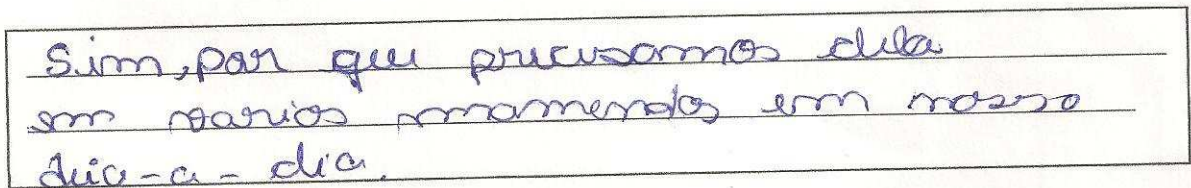 Sim, por que precisamos dela
em varios momendos em nosso
dia-a-dia.